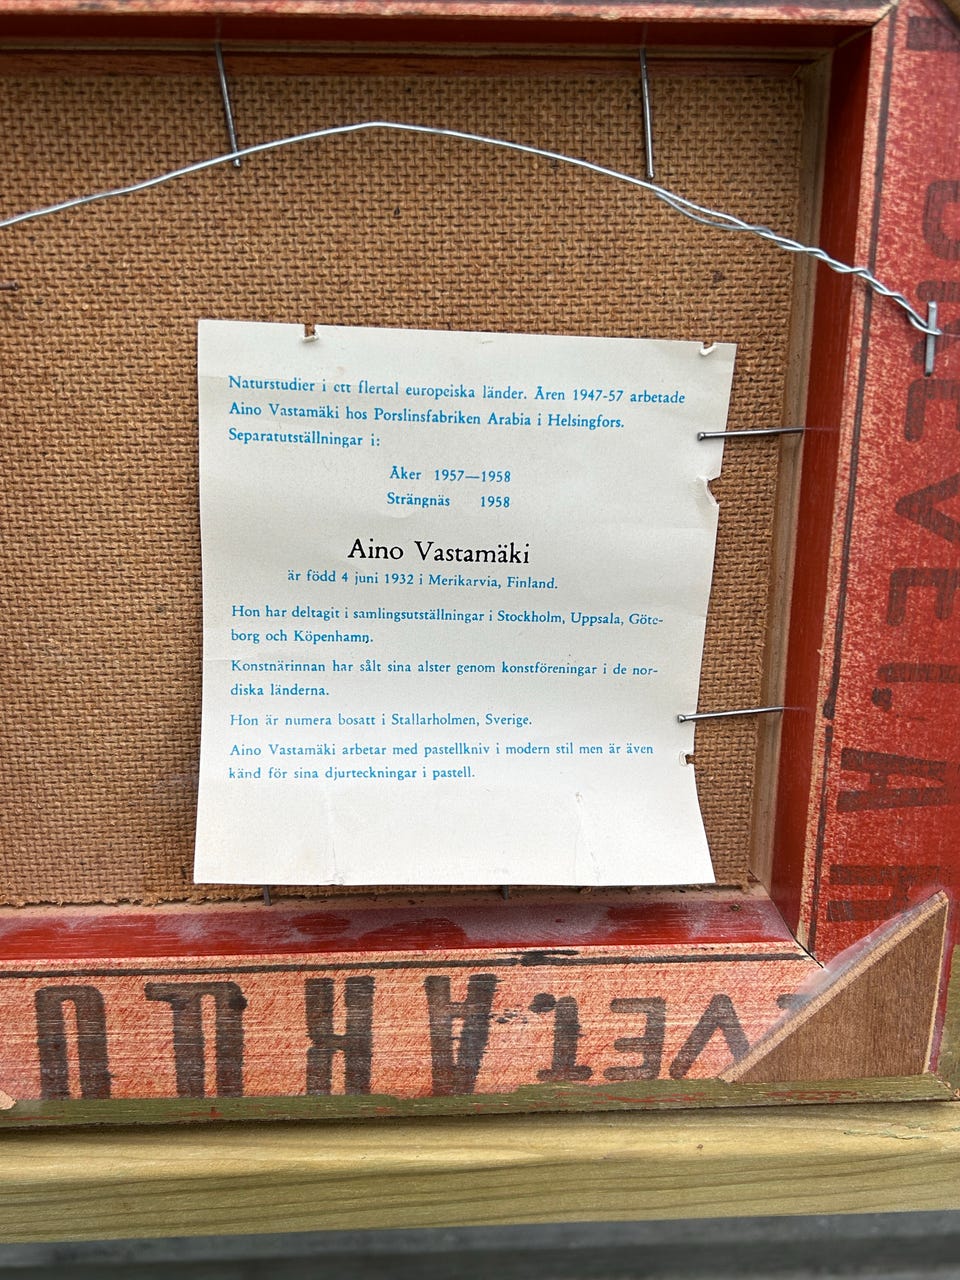 Naturstudier i ett flertal europeiska länder. Åren 1947-57 arbetade
Aino Vastamäki hos Porslinsfabriken Arabia i Helsingfors.
Separatutställningar i:
Åker 1957—1958
Strängnäs 1958
Aino Vastamäki
är född 4 juni 1932 i Merikarvia, Finland.
Hon har deltagit i samlingsutställningar i Stockholm, Uppsala, Göte-
borg och Köpenhamn.
Konstnärinnan har sålt sina alster genom konstföreningar i de nor-
diska länderna.
Hon är numera bosatt i Stallarholmen, Sverige.
Aino Vastamäki arbetar med pastellkniv i modern stil men är även
känd för sina djurteckningar i pastell.